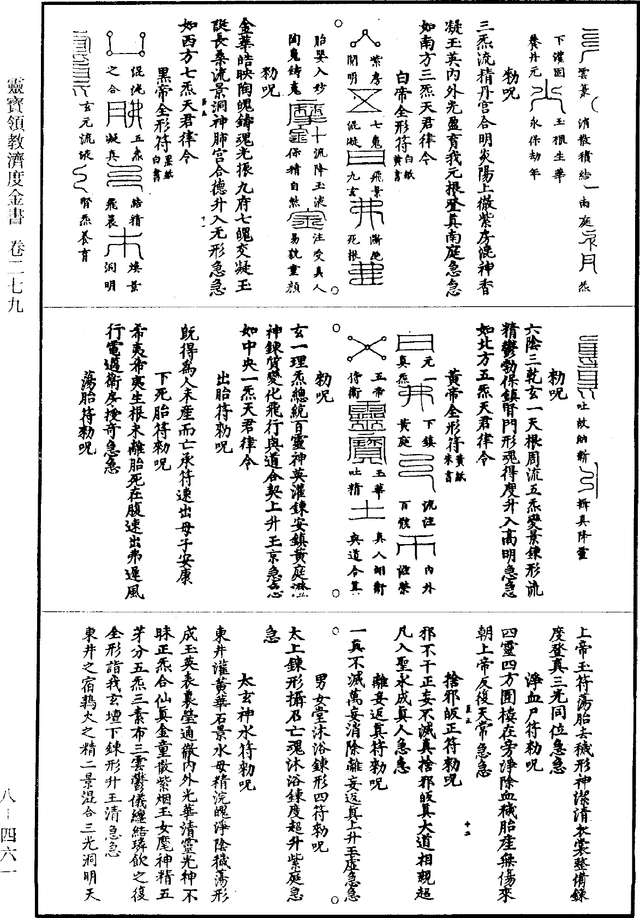 靈寶領教濟度金書 卷二七九
八－四六一
下灌固
養丹元
雲景
玉根生華
永保劫年
消散積結
南庭
炁
勑呪
三炁流精丹宮合明炎陽上徹紫房混神香
凝玉英內外光盈育我元根登真南庭急急
如南方三炁天君律令
白帝全形符 白紙黃書
紫房
開明
七鬼
混凝
飛景
九玄
斷絕
死根
胎嬰入妙
陶魂鑄魂
保精自然
流降玉液
注受真人
易貌童顏
勑呪
金華皓映陶魄鑄魂光振九府七魄交凝玉
誕長桑流景洞神肺宮合德升入无形急急
如西方七炁天君律令
黑帝全形符 黑紙白書
混沌
之合
五炁
凝真
結精
飛晨
煥景
洞明
玄元流液
腎炁養育
吐故納新
輔真降靈
勑呪
六陰三乾玄一天根周流五炁變景鍊形流
精鬱勃保鎮腎門形魂得度升入高明急急
如北方五炁天君律令
黃帝全形符 黃紙朱書
元一
真炁
下鎮
黃庭
流注
百骸
內外
滋榮
五帝
侍衛
玉華
吐精
真人翊衛
與道合真
勑呪
玄一理炁總統百靈神英灌鍊安鎮黃庭
神鍊質變化飛行與道合契上升玉京急急
如中央一炁天君律令
出胎符勑呪
既得為人未産而亡承符速出母子安康
下死胎符勑呪
希夷希夷生根未離胎死在腹速出弗遲風
行電邁衛房挍奇急急
蕩胎符勑呪
上帝玉符蕩胎去穢形神潔清衣裳整備鍊
度登真三光同位急急
淨血尸符勑呪
四靈四方圍棱在旁淨除血穢胎産無傷來
朝上帝反復天常急急
捨邪皈正符勑呪
邪不干正妄不滅真捨邪皈真大道相親超
凡入聖永成真人急急
離妄返真符勑呪
一真不滅萬妄消除離妄返真上升玉虛急急
男女堂沐浴鍊形四符勑呪
太上鍊形攝召亡魂沐浴鍊度超升紫庭急
急
太玄神水符勑呪
東井灌黃華石景水母精浣魄淨陰穢蕩形
成玉英表裏瑩通徹內外光華清靈光神不
昧正炁合仙真金童散紫烟玉女麾神精五
芽分五炁三素布三雲鬱儀纏結璘飲之復
全形詣我玄壇下鍊形升玉清急急
東井之宿鶉火之精二景混合三光洞明天